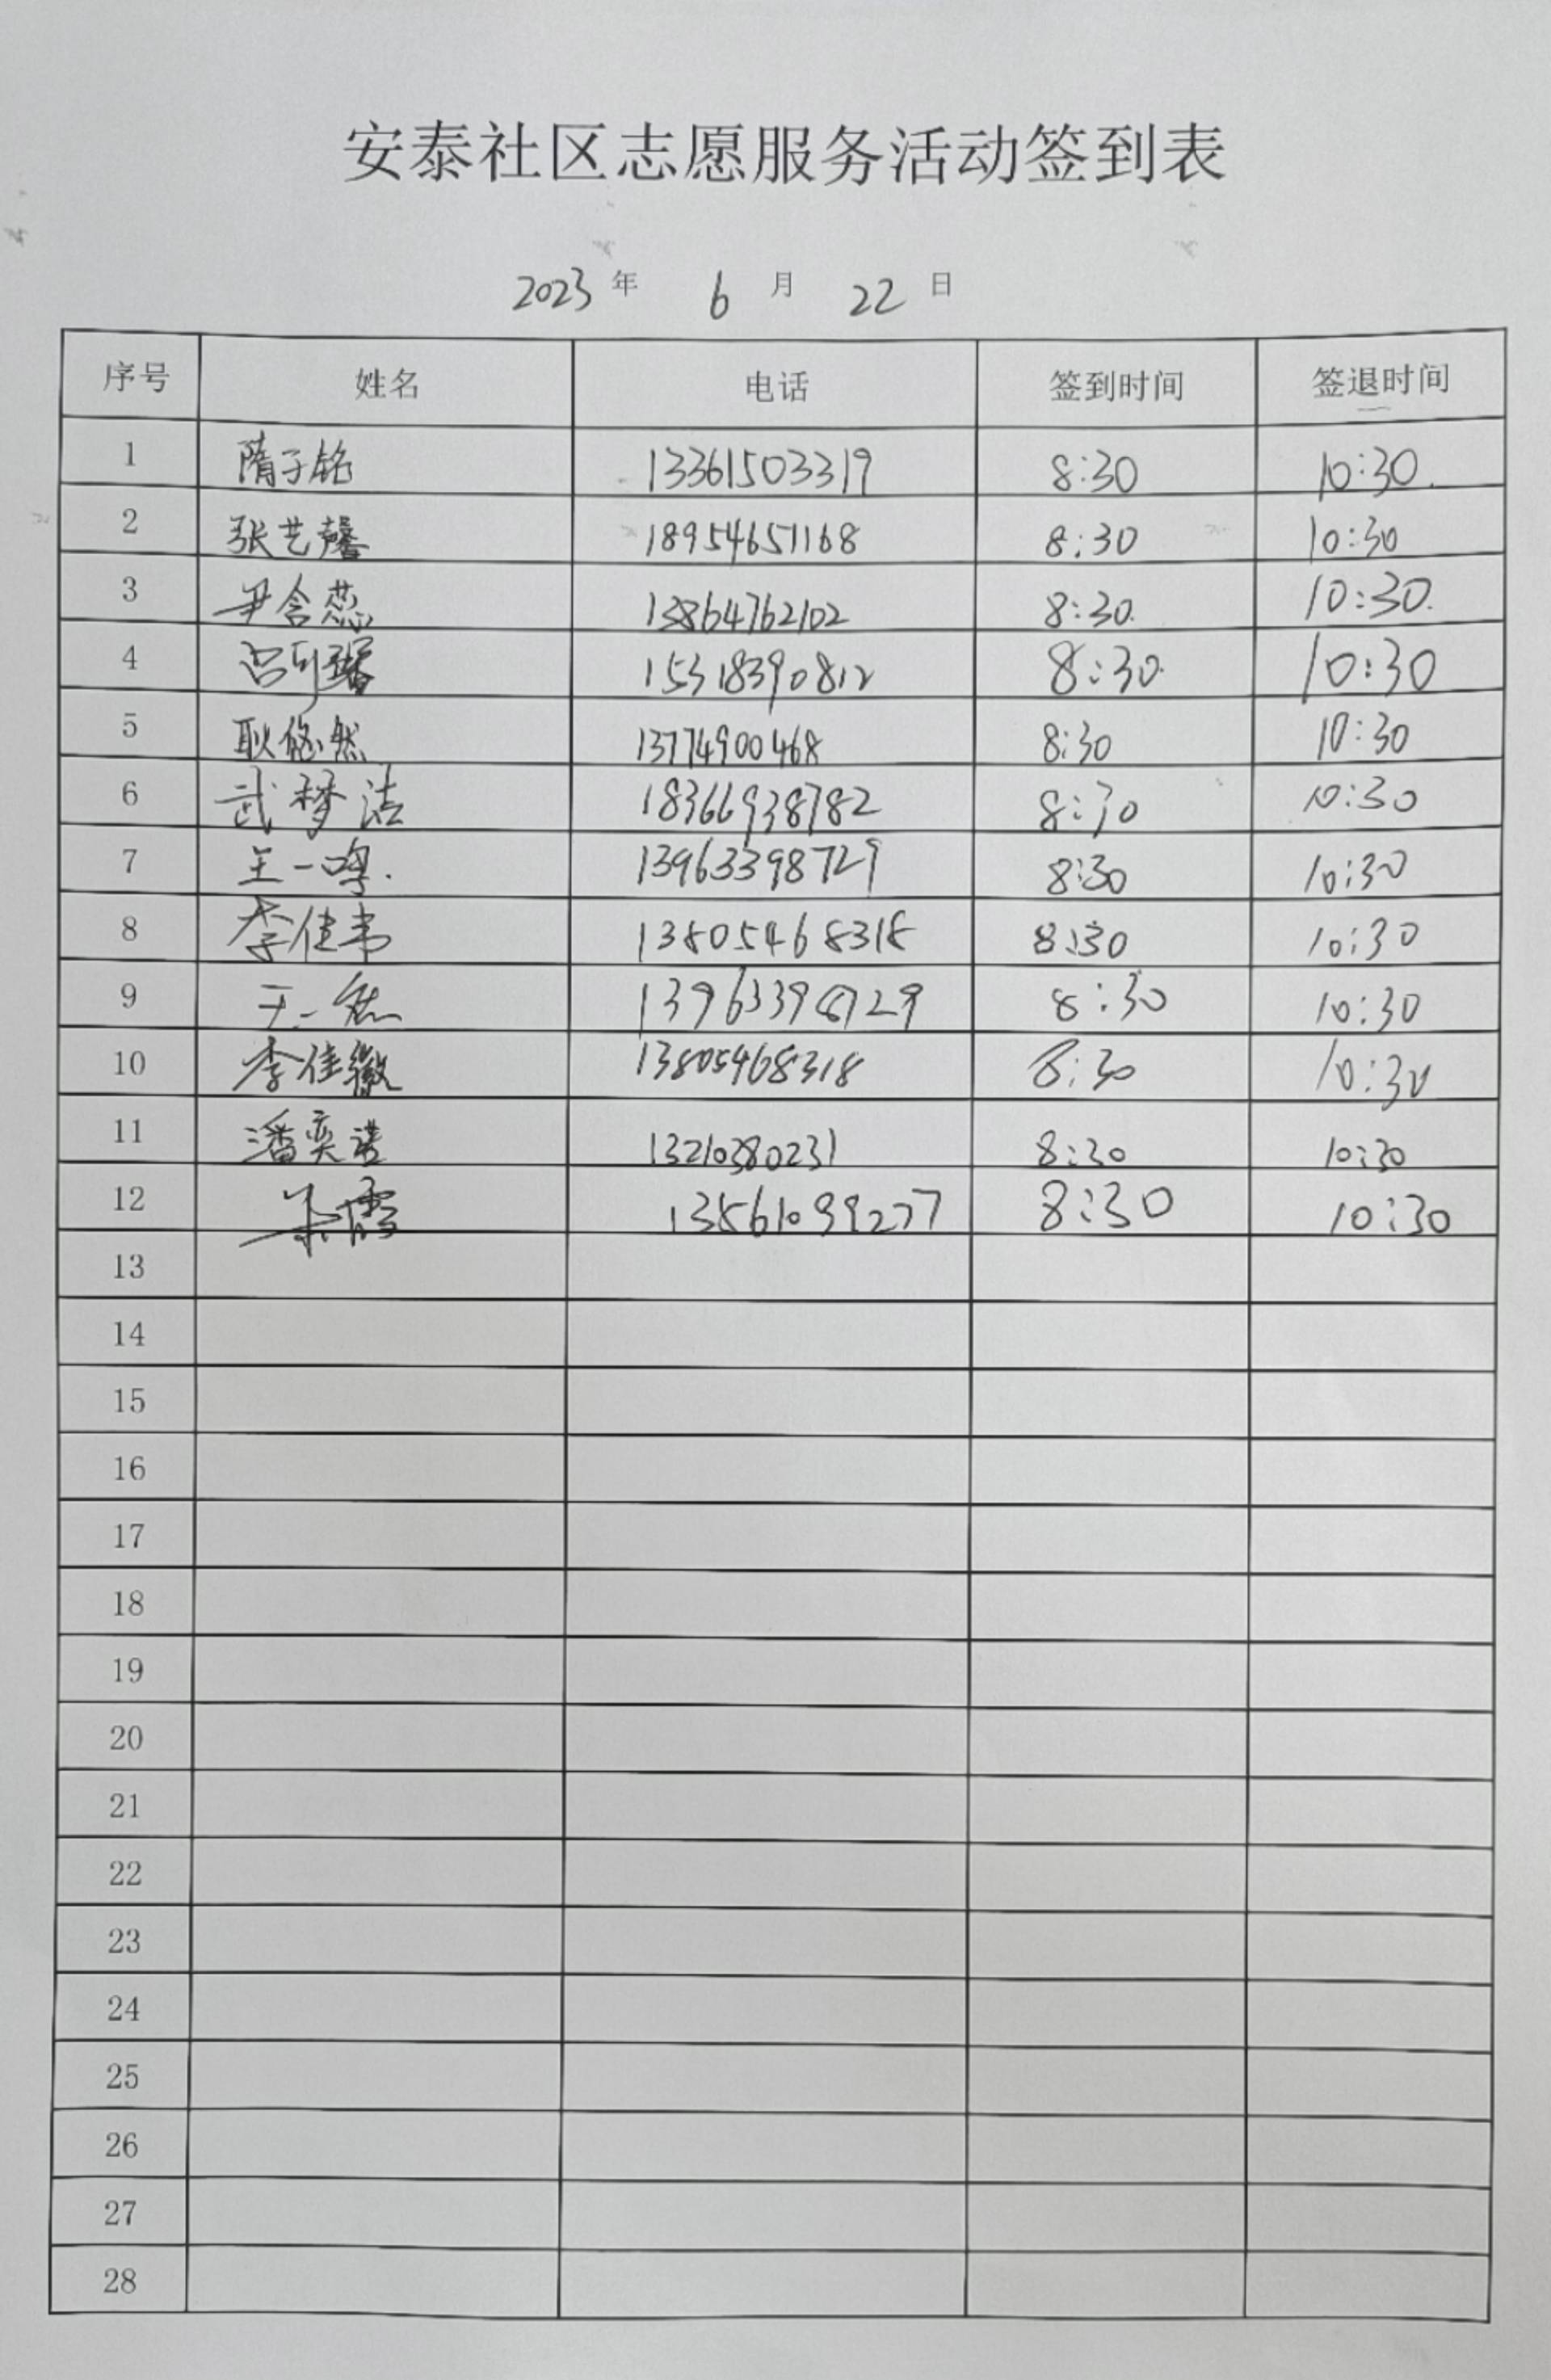 安泰社区志愿服务活动签到表
2023 年 6 月 22 日
序号 姓名 电话 签到时间 签退时间
1 隋子铭 13361503319 8:30 10:30
2 张艺馨 18954651168 8:30 10:30
3 尹含蕊 13864762102 8:30 10:30
4 15318390812 8:30 10:30
5 耿悠然 13774900468 8:30 10:30
6 武梦洁 18366938782 8:30 10:30
7 王一鸣 13963398729 8:30 10:30
8 李佳韦 13805468318 8:30 10:30
9 王一然 13963398729 8:30 10:30
10 李佳徽 13805468318 8:30 10:30
11 潘奕诺 13210380231 8:30 10:30
12 13561099277 8:30 10:30
13
14
15
16
17
18
19
20
21
22
23
24
25
26
27
28